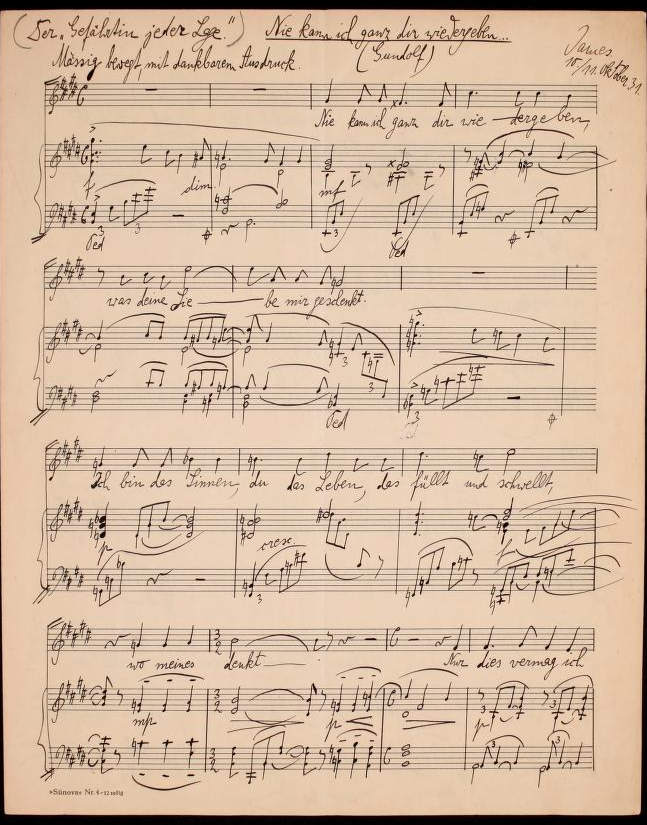 (Der „Gefährtin jeder Lge.") Nie kann ich ganz dir wiedergeben...
(Gundolf)
10/11. Oktober 31.
Mässig bewegt, mit dankbarem Ausdruck.
Nie kann ich ganz dir wie — dergeben,
f dim. mf
3 3 3
Ped Ped
was deine Lie — be mir geschenkt.
3 3
Ped
3
Ich bin das Sinnen, du das Leben, das füllt und schwellt,
p cresc. f
3
wo meines denkt — Nur dies vermag ich
3 2
mp p p
3 3
3 2
3 3
»Sünova« Nr. 4 - 12 zeilig